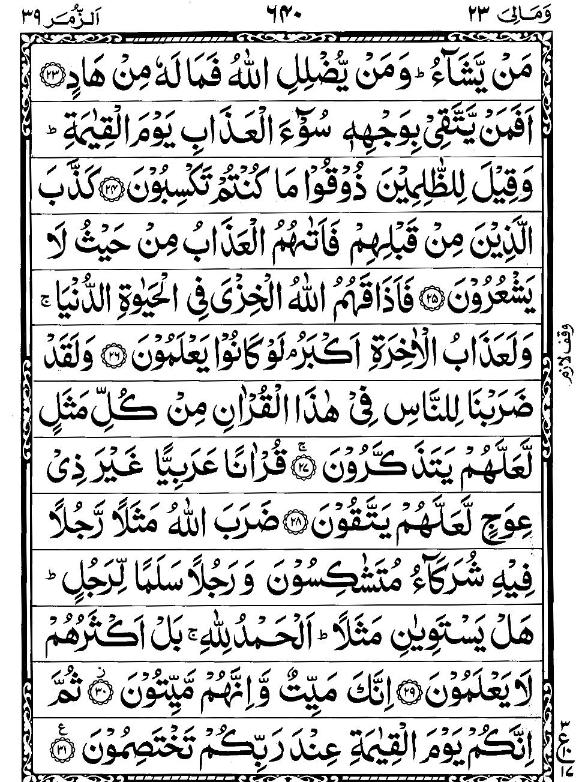 وَمَالِىَ ٢٣
٦٤٠
اَلزُّمَر ٣٩
مَنْ يَّشَآءُ ؕ وَمَنْ يُّضْلِلِ اللّٰهُ فَمَا لَهٗ مِنْ هَادٍ ﴿۲۳﴾
اَفَمَنْ يَّتَّقِىْ بِوَجْهِهٖ سُوْٓءَ الْعَذَابِ يَوْمَ الْقِيٰمَةِ ؕ
وَقِيْلَ لِلظّٰلِمِيْنَ ذُوْقُوْا مَا كُنْتُمْ تَكْسِبُوْنَ ﴿۲۴﴾ كَذَّبَ
الَّذِيْنَ مِنْ قَبْلِهِمْ فَاَتٰىهُمُ الْعَذَابُ مِنْ حَيْثُ لَا
يَشْعُرُوْنَ ﴿۲۵﴾ فَاَذَاقَهُمُ اللّٰهُ الْخِزْىَ فِى الْحَيٰوةِ الدُّنْيَا ۚ
وَلَعَذَابُ الْاٰخِرَةِ اَكْبَرُ ۘ لَوْ كَانُوْا يَعْلَمُوْنَ ﴿۲۶﴾ وَلَقَدْ
وقف لازم
ضَرَبْنَا لِلنَّاسِ فِىْ هٰذَا الْقُرْاٰنِ مِنْ كُلِّ مَثَلٍ
لَّعَلَّهُمْ يَتَذَكَّرُوْنَ ۚ ﴿۲۷﴾ قُرْاٰنًا عَرَبِيًّا غَيْرَ ذِىْ
عِوَجٍ لَّعَلَّهُمْ يَتَّقُوْنَ ﴿۲۸﴾ ضَرَبَ اللّٰهُ مَثَلًا رَّجُلًا
فِيْهِ شُرَكَآءُ مُتَشٰكِسُوْنَ وَرَجُلًا سَلَمًا لِّرَجُلٍ ؕ
هَلْ يَسْتَوِيٰنِ مَثَلًا ؕ اَلْحَمْدُ لِلّٰهِ ۚ بَلْ اَكْثَرُهُمْ
لَا يَعْلَمُوْنَ ﴿۲۹﴾ اِنَّكَ مَيِّتٌ وَّاِنَّهُمْ مَّيِّتُوْنَ ﴿۳۰﴾ ثُمَّ
اِنَّكُمْ يَوْمَ الْقِيٰمَةِ عِنْدَ رَبِّكُمْ تَخْتَصِمُوْنَ ﴿۳۱﴾